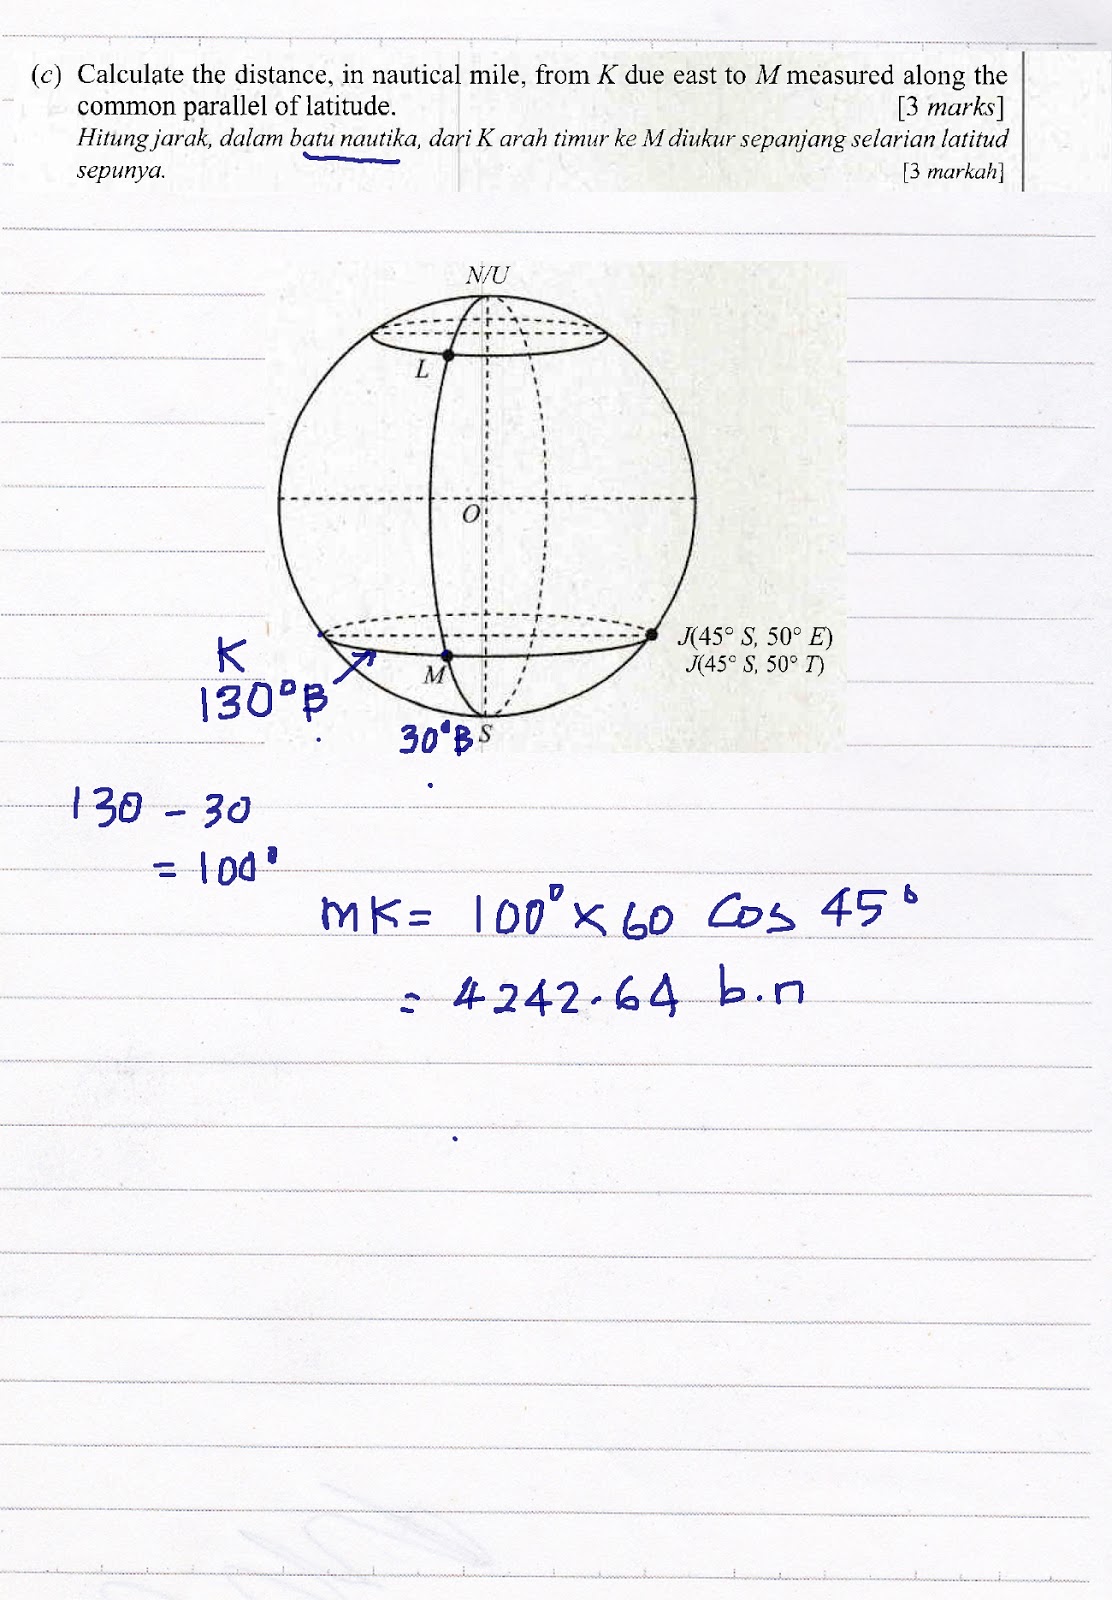 (c) Calculate the distance, in nautical mile, from K due east to M measured along the
common parallel of latitude. [3 marks]
Hitung jarak, dalam batu nautika, dari K arah timur ke M diukur sepanjang selarian latitud
sepunya. [3 markah]
N/U
L
O
K
130°B
M
J(45° S, 50° E)
J(45° S, 50° T)
30°B
S
130 - 30
= 100°
MK = 100° × 60 Cos 45°
= 4242.64 b.n